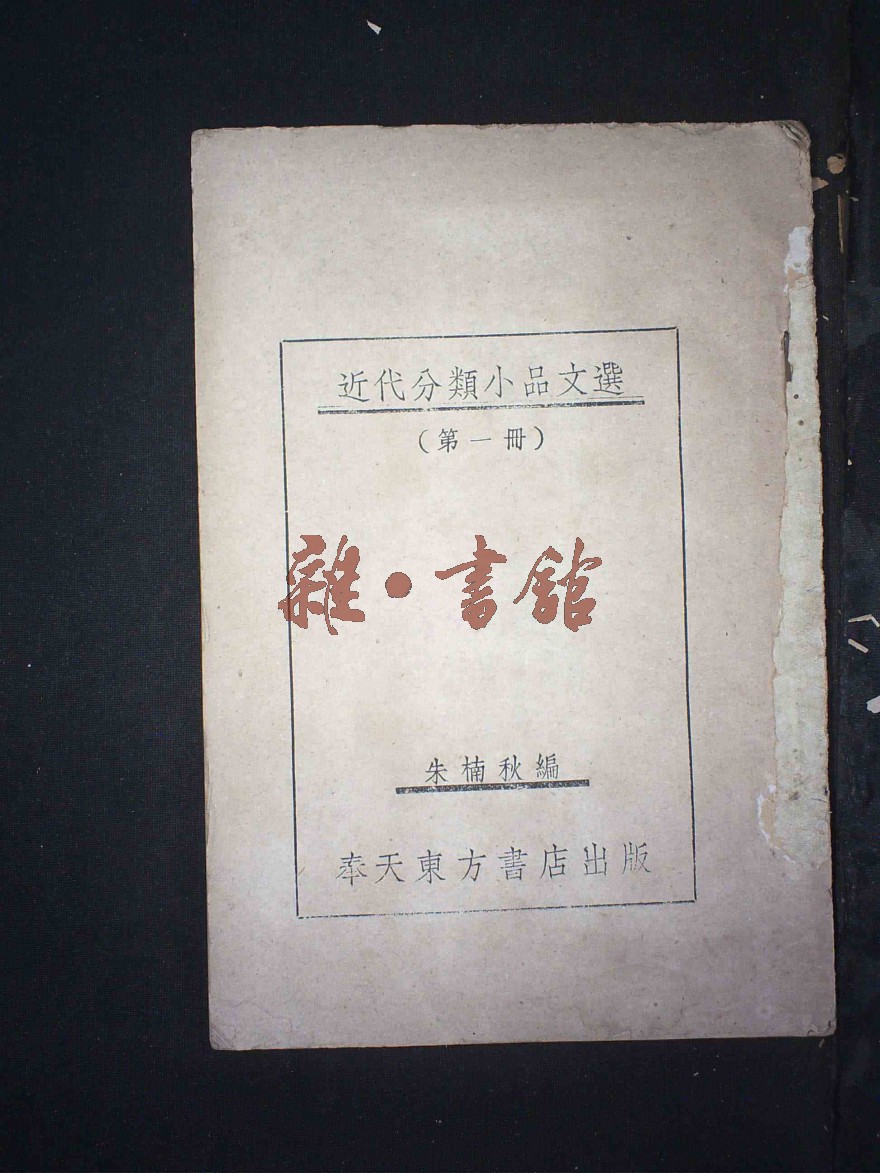 近代分類小品文選
（第一冊）
雜·書館
朱楠秋編
奉天東方書店出版